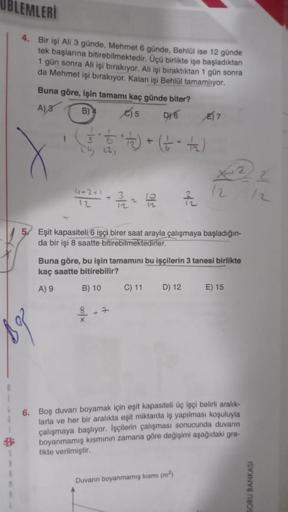 UBLEMLERİ
4. Bir işi Ali 3 günde, Mehmet 6 günde, Behlül ise 12 günde
tek başlarına bitirebilmektedir. Üçü birlikte işe başladıktan
1 gün sonra Ali işi bırakıyor. Ali işi bıraktıktan 1 gün sonra
da Mehmet işi bırakıyor. Kalan işi Behlül tamamlıyor.
Buna göre, işin tamamı kaç günde biter?
A) 3 B) 4 C) 5 D) 6 E) 7
(1/3 + 1/6 + 1/12) + (1/6 + 1/12)
(4) (2)
4+2+1/12 + 3/12 = 10/12 2/12
5. Eşit kapasiteli 6 işçi birer saat arayla çalışmaya başladığın-
da bir işi 8 saatte bitirebilmektedirler.
Buna göre, bu işin tamamını bu işçilerin 3 tanesi birlikte
kaç saatte bitirebilir?
A) 9 B) 10 C) 11 D) 12 E) 15
8/x
6. Boş duvarı boyamak için eşit kapasiteli üç işçi belirli aralık-
larla ve her bir aralıkta eşit miktarda iş yapılması koşuluyla
çalışmaya başlıyor. İşçilerin çalışması sonucunda duvarın
boyanmamış kısmının zamana göre değişimi aşağıdaki gra-
fikte verilmiştir.
Duvarın boyanmamış kısmı (m²)
SORU BANKASI